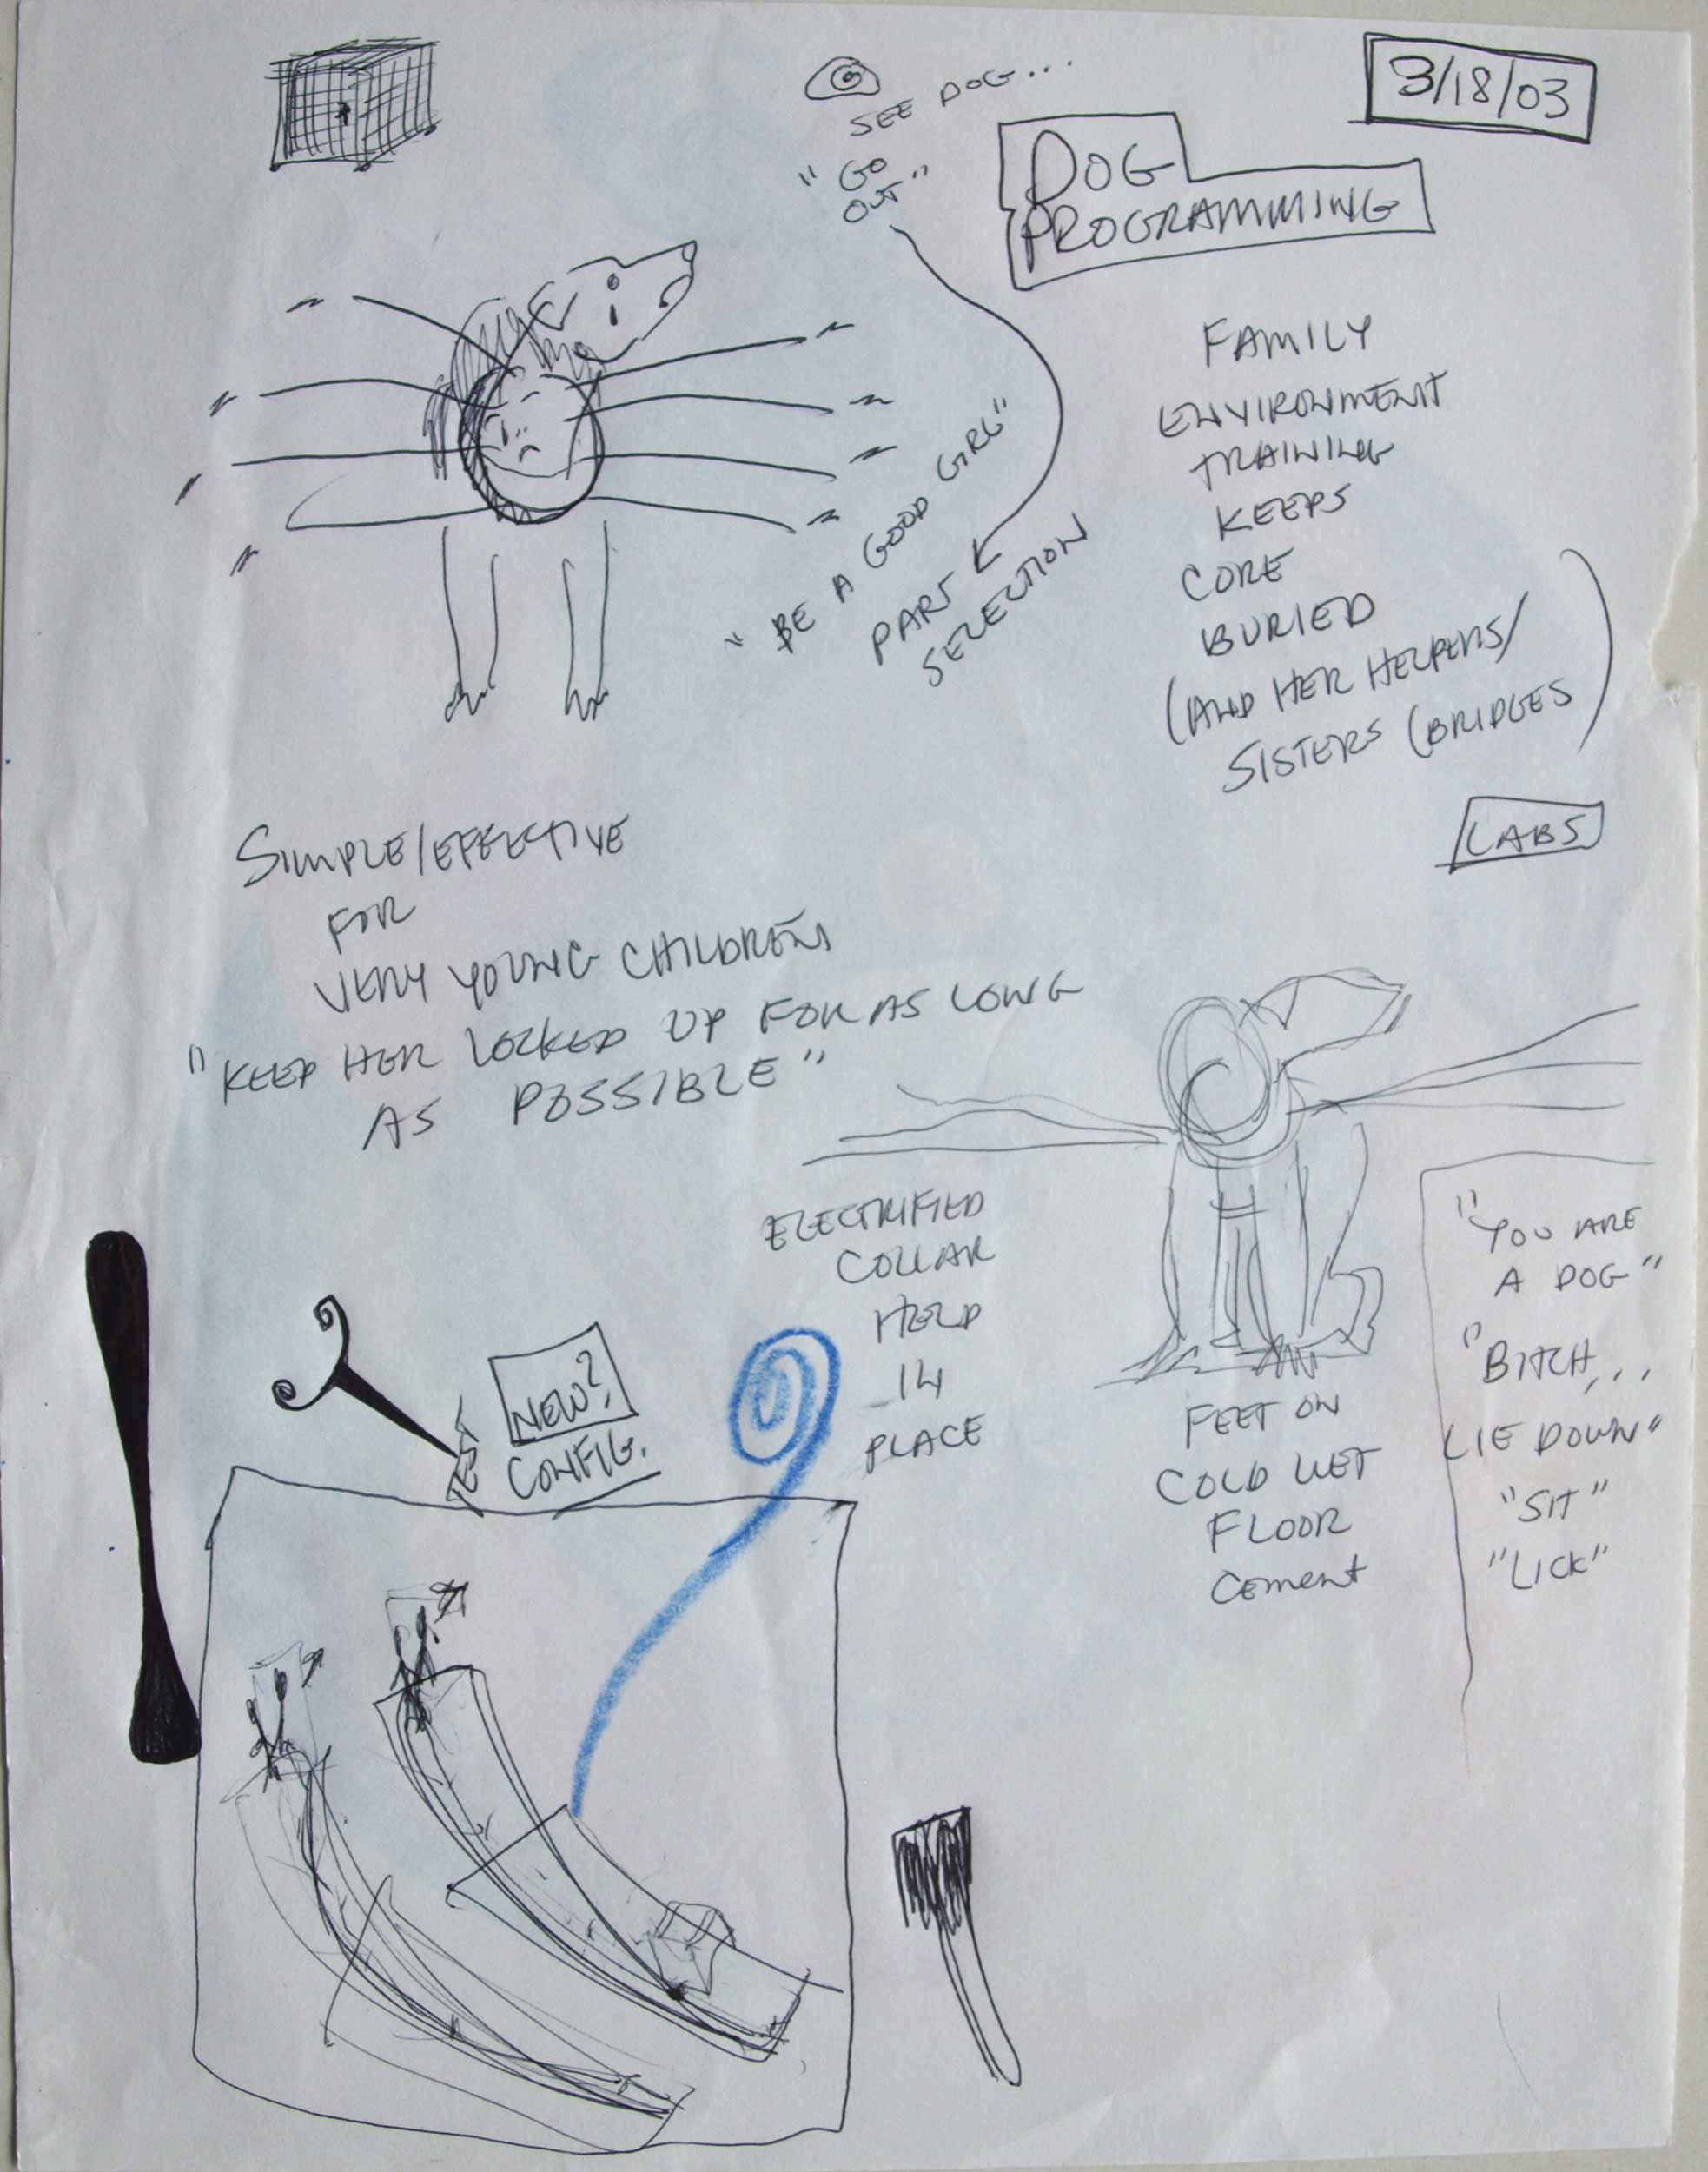 3/18/03
SEE DOG...
"GO
OUT"
DOG
PROGRAMMING
"BE A GOOD GIRL"
PART
SELECTION
FAMILY
ENVIRONMENT
TRAINING
KEEPS
CORE
BURIED
(AND HER HELPERS/
SISTERS (BRIDGES)
LABS
SIMPLE/EFFECTIVE
FOR
VERY YOUNG CHILDREN
"KEEP HER LOCKED UP FOR AS LONG
AS POSSIBLE"
ELECTRIFIED
COLLAR
HELD
IN
PLACE
FEET ON
COLD WET
FLOOR
Cement
"YOU ARE
A DOG"
"BITCH...
LIE DOWN"
"SIT"
"LICK"
TEST
NEW?
CONFIG.